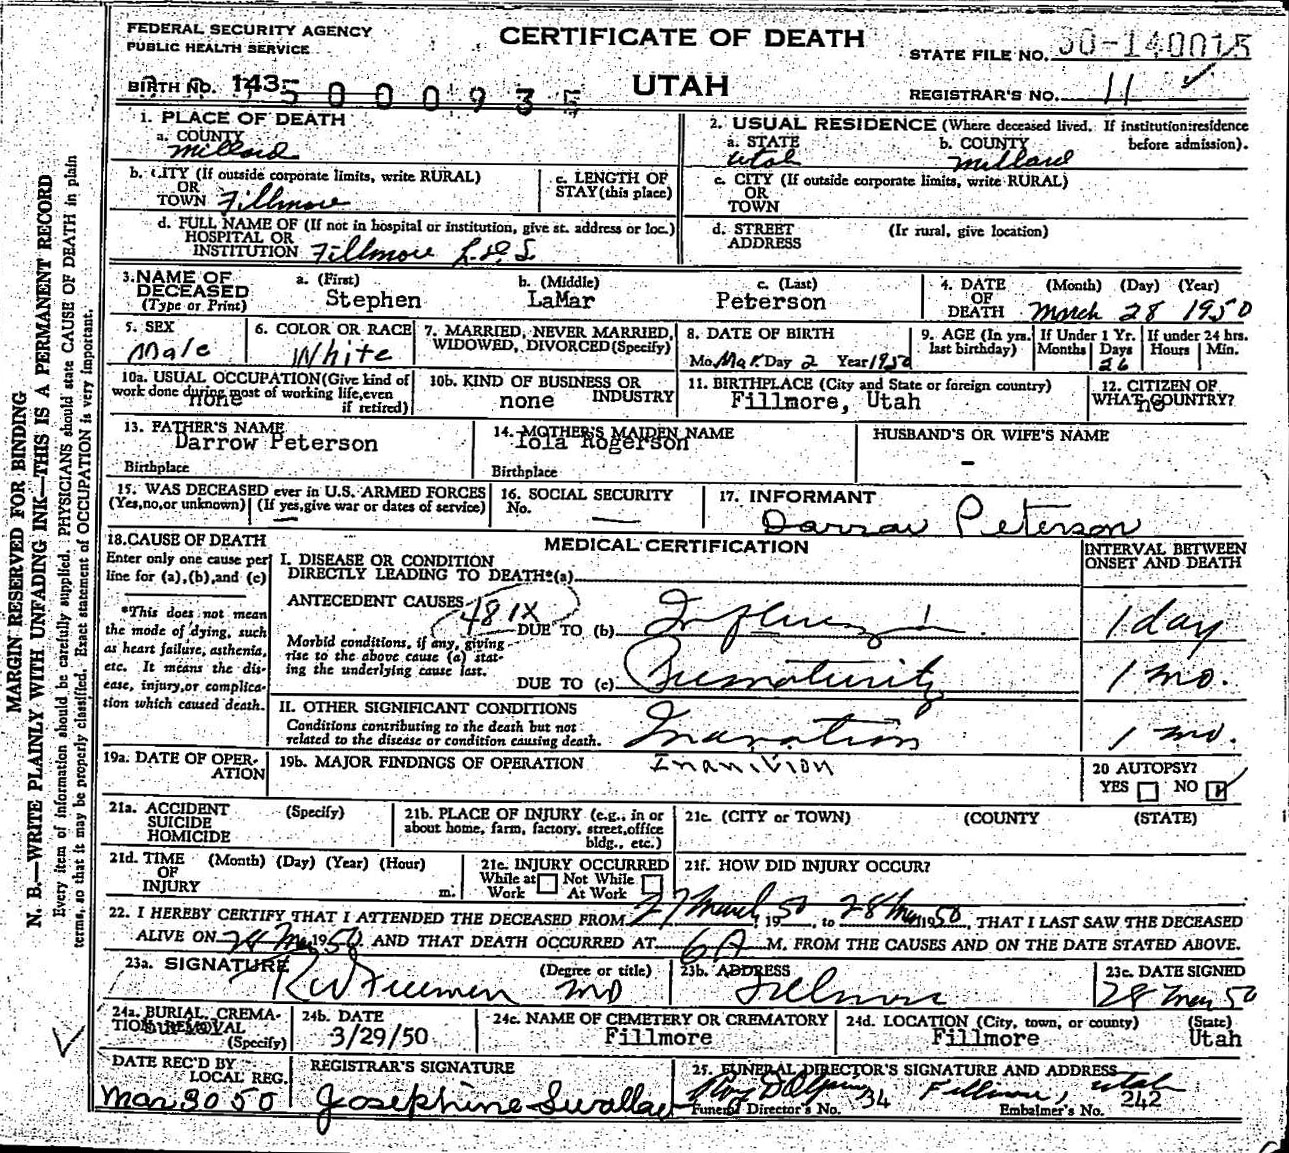 FEDERAL SECURITY AGENCY
PUBLIC HEALTH SERVICE
CERTIFICATE OF DEATH
STATE FILE NO. 50-140015
BIRTH NO. 143
UTAH
REGISTRAR'S NO. 11 ✓
1. PLACE OF DEATH
a. COUNTY
Millard
2. USUAL RESIDENCE (Where deceased lived. If institution:residence before admission).
a. STATE b. COUNTY
Utah Millard
b. CITY (If outside corporate limits, write RURAL)
OR
TOWN Fillmore
c. LENGTH OF
STAY (this place)
c. CITY (If outside corporate limits, write RURAL)
OR
TOWN
d. FULL NAME OF (If not in hospital or institution, give st. address or loc.)
HOSPITAL OR
INSTITUTION Fillmore L.D.S.
d. STREET (If rural, give location)
ADDRESS
3. NAME OF DECEASED
(Type or Print)
a. (First) b. (Middle) c. (Last)
Stephen LaMar Peterson
4. DATE OF DEATH
(Month) (Day) (Year)
March 28 1950
5. SEX
Male
6. COLOR OR RACE
White
7. MARRIED, NEVER MARRIED,
WIDOWED, DIVORCED (Specify)
8. DATE OF BIRTH
Mo. Mar. Day 2 Year 1950
9. AGE (In yrs. last birthday)
If Under 1 Yr.
Months Days
26
If under 24 hrs.
Hours Min.
10a. USUAL OCCUPATION (Give kind of work done during most of working life, even if retired)
none
10b. KIND OF BUSINESS OR INDUSTRY
none
11. BIRTHPLACE (City and State or foreign country)
Fillmore, Utah
12. CITIZEN OF WHAT COUNTRY?
no
13. FATHER'S NAME
Darrow Peterson
Birthplace
14. MOTHER'S MAIDEN NAME
Iola Rogerson
Birthplace
HUSBAND'S OR WIFE'S NAME
–
15. WAS DECEASED ever in U.S. ARMED FORCES
(Yes, no, or unknown) (If yes, give war or dates of service)
—
16. SOCIAL SECURITY
No. —
17. INFORMANT
Darrow Peterson
18. CAUSE OF DEATH
Enter only one cause per line for (a), (b), and (c)
*This does not mean the mode of dying, such as heart failure, asthenia, etc. It means the disease, injury, or complication which caused death.
MEDICAL CERTIFICATION
INTERVAL BETWEEN ONSET AND DEATH
I. DISEASE OR CONDITION
DIRECTLY LEADING TO DEATH*(a)
ANTECEDENT CAUSES
481X
DUE TO (b) Influenza 1 day
Morbid conditions, if any, giving rise to the above cause (a) stating the underlying cause last.
DUE TO (c) Prematurity 1 mo.
II. OTHER SIGNIFICANT CONDITIONS
Conditions contributing to the death but not related to the disease or condition causing death.
Inanition 1 mo.
Inanition
19a. DATE OF OPERATION
19b. MAJOR FINDINGS OF OPERATION
20 AUTOPSY?
YES NO ✓
21a. ACCIDENT (Specify)
SUICIDE
HOMICIDE
21b. PLACE OF INJURY (e.g., in or about home, farm, factory, street, office bldg., etc.)
21c. (CITY or TOWN) (COUNTY (STATE)
21d. TIME (Month) (Day) (Year) (Hour)
OF
INJURY m.
21e. INJURY OCCURRED
While at Work Not While At Work
21f. HOW DID INJURY OCCUR?
22. I HEREBY CERTIFY THAT I ATTENDED THE DECEASED FROM 27 March, 1950, to 28 Mar 1950, THAT I LAST SAW THE DECEASED
ALIVE ON 28 Mar 1950 AND THAT DEATH OCCURRED AT 6 A M. FROM THE CAUSES AND ON THE DATE STATED ABOVE.
23a. SIGNATURE (Degree or title)
Freeman MD
23b. ADDRESS
Fillmore
23c. DATE SIGNED
28 Mar 50
24a. BURIAL, CREMATION, REMOVAL
(Specify)
24b. DATE
3/29/50
24c. NAME OF CEMETERY OR CREMATORY
Fillmore
24d. LOCATION (City, town, or county) (State)
Fillmore Utah
DATE REC'D BY LOCAL REG.
Mar 30 50
REGISTRAR'S SIGNATURE
Josephine Swallow
25. FUNERAL DIRECTOR'S SIGNATURE AND ADDRESS
Fillmore, Utah
Funeral Director's No. 34 Embalmer's No. 242
MARGIN RESERVED FOR BINDING
N. B.—WRITE PLAINLY WITH UNFADING INK—THIS IS A PERMANENT RECORD
Every item of information should be carefully supplied. PHYSICIANS should state CAUSE OF DEATH in plain
terms, so that it may be properly classified. Exact statement of OCCUPATION is very important.